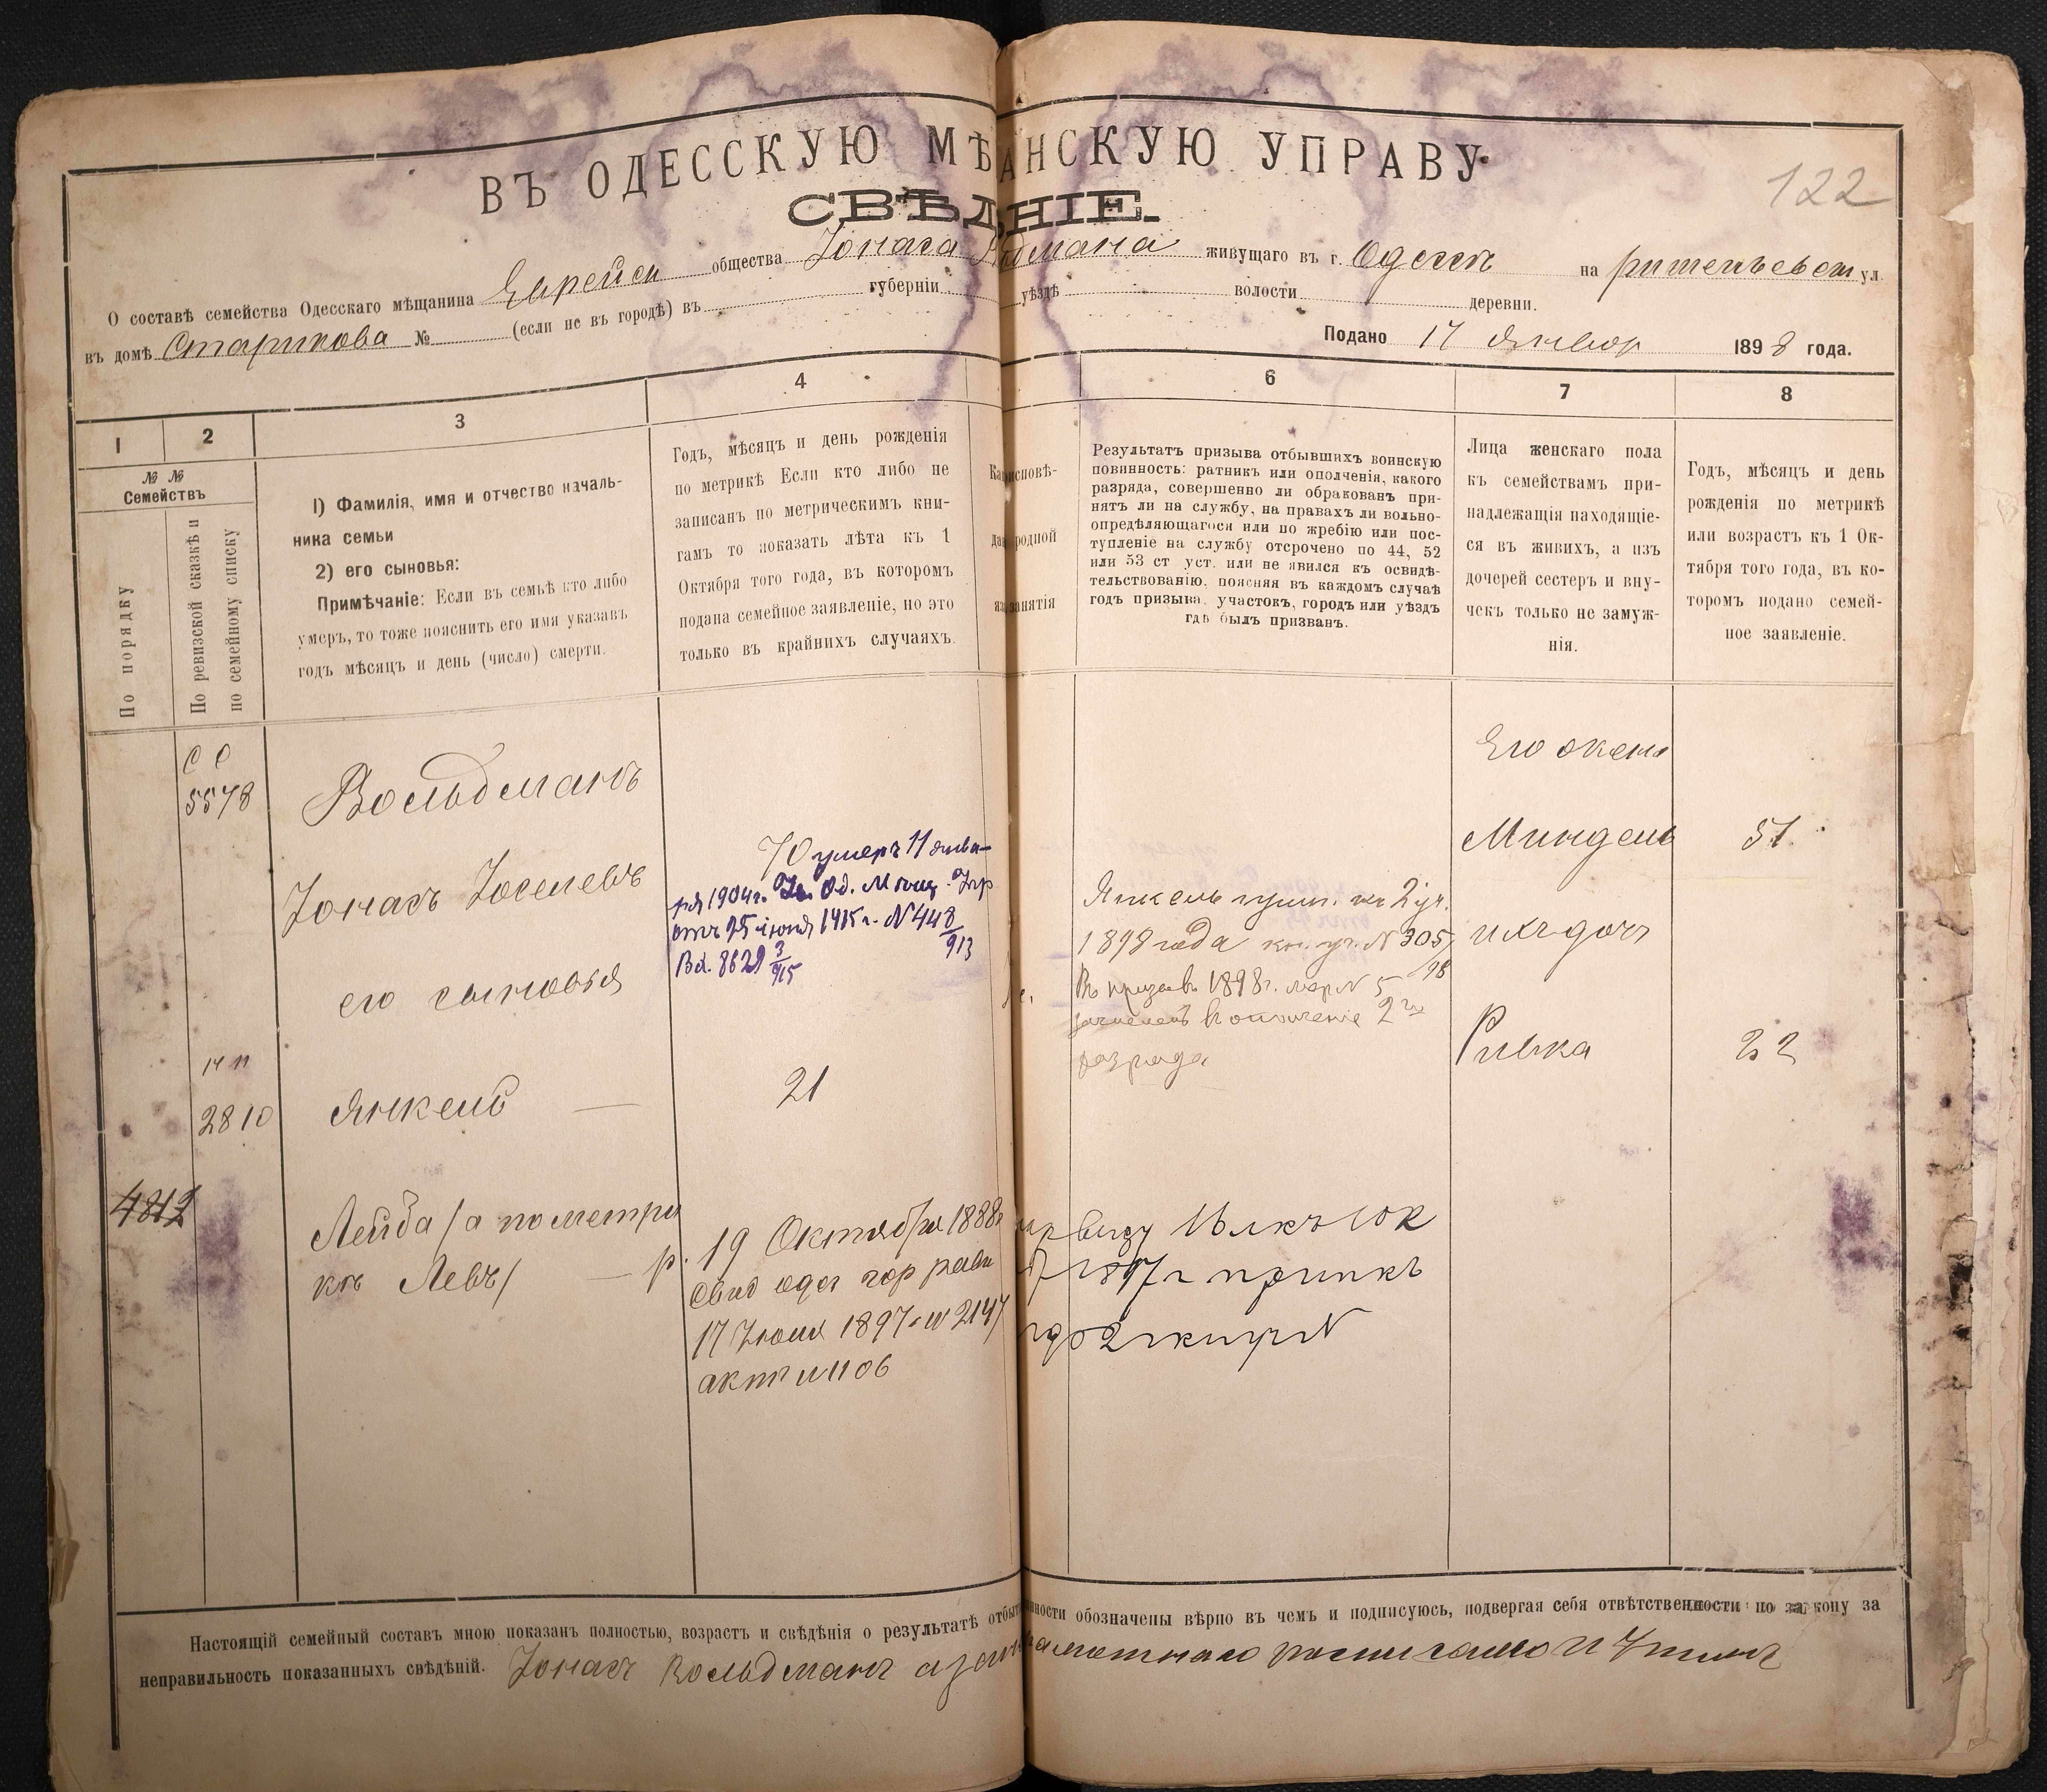 122
ВЪ ОДЕССКУЮ МѢАНСКУЮ УПРАВУ
СВѢДНІЕ.
О составѣ семейства Одесскаго мѣщанина Еврейск общества Іонаса дмана живущаго въ г. Одессѣ на ришельевск ул.
въ домѣ Старикова № (если не въ городѣ) въ губерніи уѣздѣ волости деревни.
Подано 17 Январ 1898 года.
1 2 3 4 6 7 8
№ №
Семействъ
По порядку
По ревизской сказкѣ и
по семейному списку
1) Фамилія, имя и отчество началь-
ника семьи
2) его сыновья:
Примѣчаніе: Если въ семьѣ кто либо
умеръ, то тоже пояснить его имя указавъ
годъ мѣсяцъ и день (число) смерти.
Годъ, мѣсяцъ и день рожденія
по метрикѣ Если кто либо не
записанъ по метрическимъ кни-
гамъ то показать лѣта къ 1
Октября того года, въ которомъ
подана семейное заявленіе, но это
только въ крайнихъ случаяхъ.
Ка исповѣ-
да родной
яз занятія
Результатъ призыва отбывшихъ воинскую
повинность: ратникъ или ополченія, какого
разряда, совершенно ли обракованъ при-
нятъ ли на службу, на правахъ ли вольно-
опредѣляющагося или по жребію или пос-
тупленіе на службу отсрочено по 44, 52
или 53 ст уст. или не явился къ освидѣ-
тельствованію. поясняя въ каждомъ случаѣ
годъ призыва. участокъ, городъ или уѣздъ
гдѣ былъ призванъ.
Лица женскаго пола
къ семействамъ при-
надлежащія находящіе-
ся въ живихъ, а изъ
дочерей сестеръ и вну-
чекъ только не замуж-
нія.
Годъ, мѣсяцъ и день
рожденія по метрикѣ
или возрастъ къ 1 Ок-
тября того года, въ ко-
торомъ подано семей-
ное заявленіе.
СС
5578
Вольдманъ
Іонасъ Іоселевъ
его сыновья
70 умеръ 11 янва-
ря 1904 г. Од. Мѣщ. Упр
отъ 25 іюня 1915 г. N 448/913
Вх. 8629 3/915
2810
Янкель — 21
Янкель 2 уч.
1898 года N 305/98
Въ призывъ 1898 г. N 5
зачисленъ въ ополченіе 2го
разряда
Его жена
Миндель 51.
ихъ дочь
Ривка 22
4812
Лейба /а по метри
кѣ Левъ/ — р. 19 Октября 1888 г
свид одес гор равв
17 Іюня 1897 г N 2147
актъ N 1106
1897 г
Настоящій семейный составъ мною показанъ полностью, возрастъ и свѣдѣнія о результатѣ отбы нности обозначены вѣрно въ чемъ и подписуюсь, подвергая себя отвѣтственности по закону за
неправильность показанныхъ свѣдѣній. Іонасъ Вольдманъ